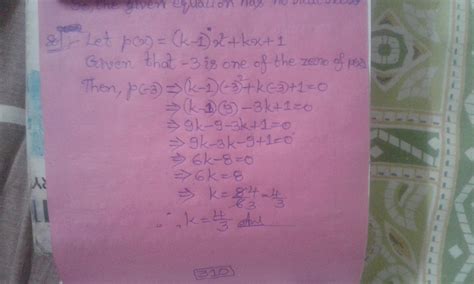 So the given equation has no
Sol:- Let p(x) = (k-1)x²+kx+1
Given that -3 is one of the zero of p(x)
Then, p(-3) ⇒ (k-1)(-3)²+k(-3)+1=0
⇒ (k-1)(9) -3k+1=0
⇒ 9k-9-3k+1=0
⇒ 9k-3k-9+1=0
⇒ 6k-8=0
⇒ 6k=8
⇒ k=8/6 4/3 = 4/3
∴ k=4/3 Ans
310